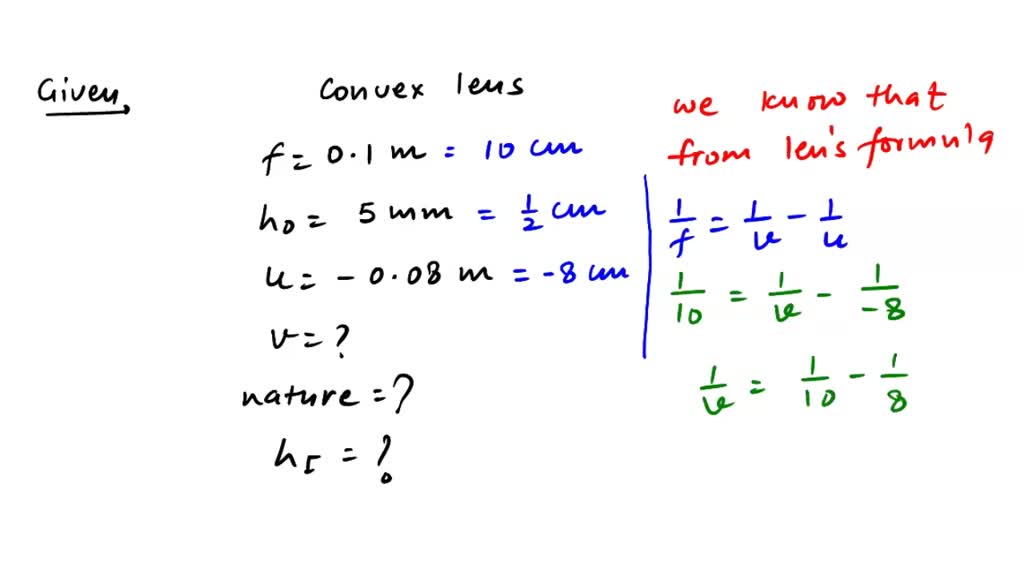 Given,
Convex lens
f = 0.1 m = 10 cm
ho = 5 mm = 1/2 cm
u = - 0.08 m = -8 cm
v = ?
nature = ?
hI = ?
we know that
from len's formula
1/f = 1/v - 1/u
1/10 = 1/v - 1/-8
1/v = 1/10 - 1/8